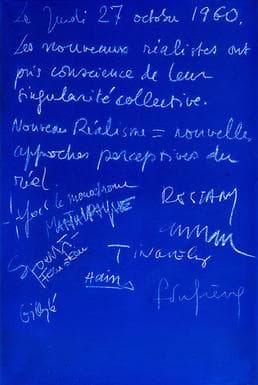 Le Jeudi 27 octobre 1960.
Les nouveaux réalistes ont
pris conscience de leur
singularité collective.
Nouveau Réalisme = nouvelles
approches perceptives du
réel.
Yves le monochrome
RESTANY
Arman
TINGUELY
Hains